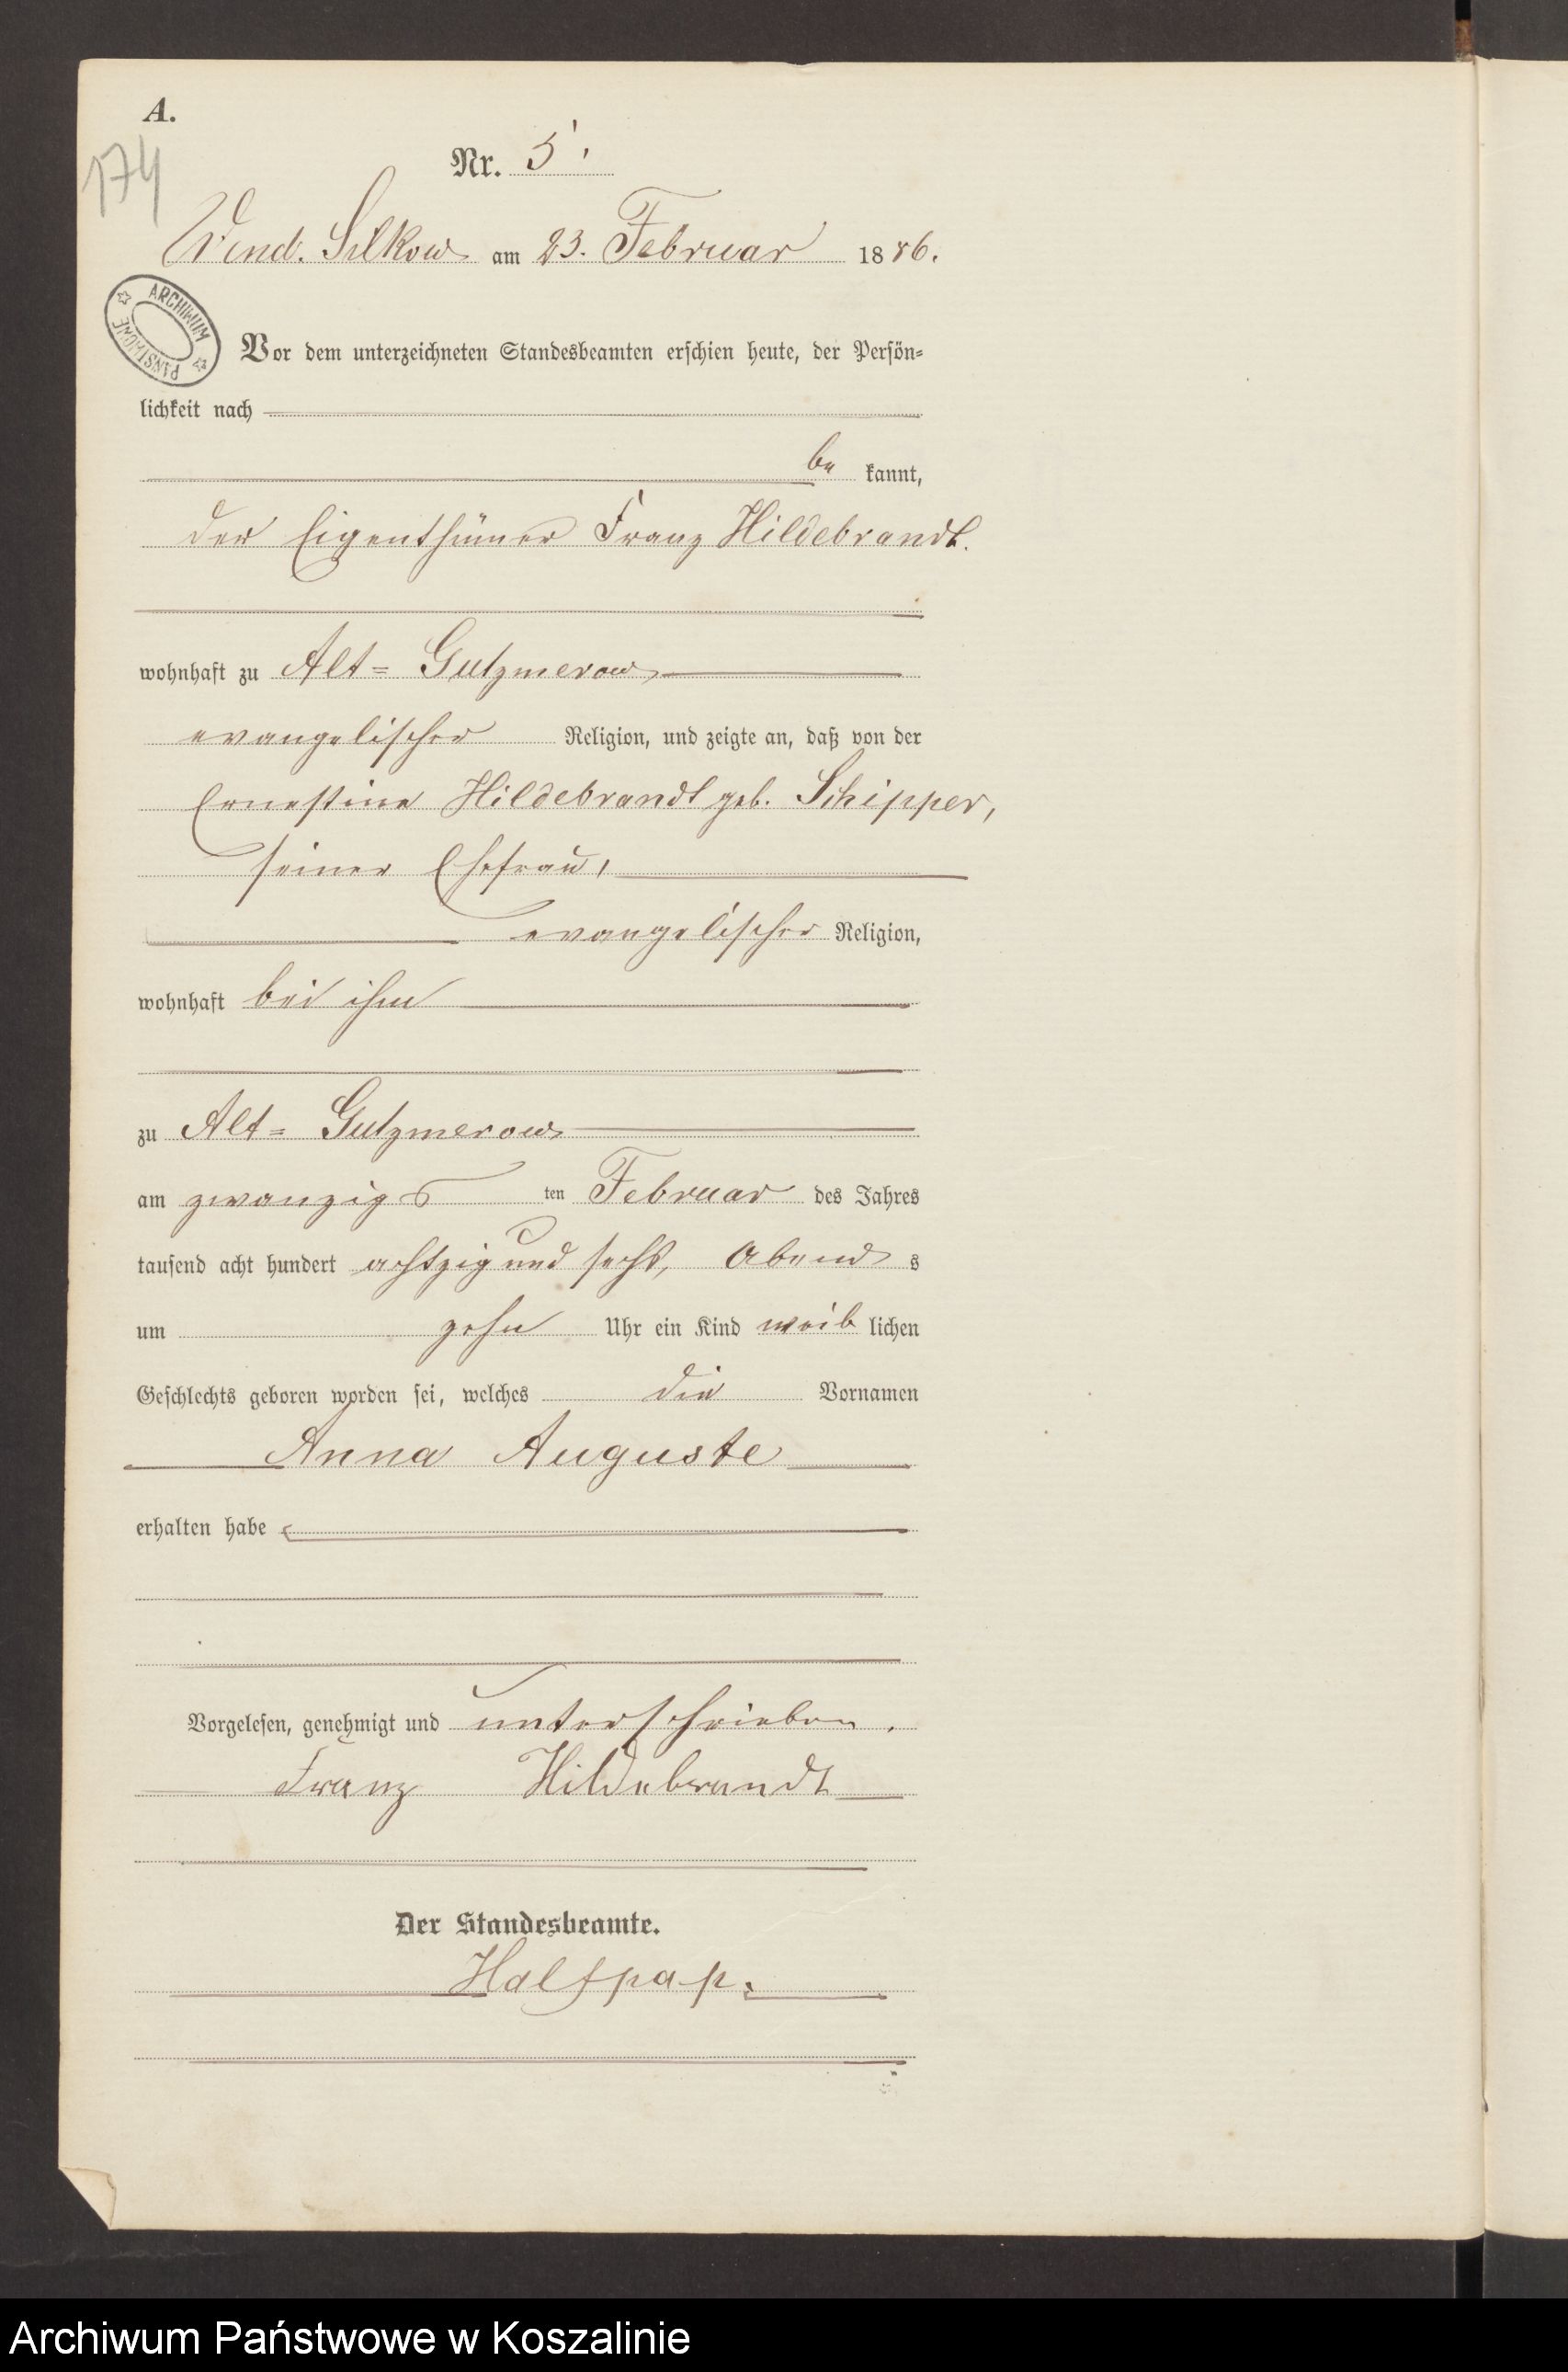 A.
174
Nr. 5.
Wend. Silkow am 23. Februar 1886.
ARCHIWUM PAŃSTWOWE
Vor dem unterzeichneten Standesbeamten erschien heute, der Persön=
lichkeit nach
be kannt,
der Eigenthümer Franz Hildebrandt.
wohnhaft zu Alt= Gutzmerow
evangelischer Religion, und zeigte an, daß von der
Ernestine Hildebrandt geb. Schipper,
seiner Ehefrau,
evangelischer Religion,
wohnhaft bei ihm
zu Alt= Gutzmerow
am zwanzigs ten Februar des Jahres
tausend acht hundert achtzig und sechs, Abend s
um zehn Uhr ein Kind weib lichen
Geschlechts geboren worden sei, welches die Vornamen
Anna Auguste
erhalten habe
Vorgelesen, genehmigt und unterschrieben.
Franz Hildebrandt
Der Standesbeamte.
Halfpap.
Archiwum Państwowe w Koszalinie